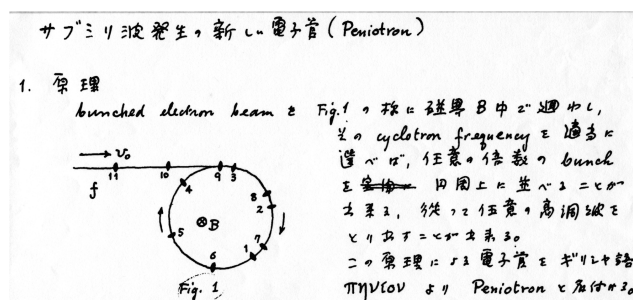 サブミリ波発生の新しい電子管 (Peniotron)
1. 原理
bunched electron beam を Fig.1 の様に磁界 B 中で廻わし,
その cyclotron frequency を適当に
選べば, 任意の倍数の bunch
を 円周上に並べることが
出来る, 従って任意の高調波を
とり出すことが出来る。
この原理による電子管をギリシャ語
πηνίον より Peniotron と名付ける。
v₀
f
11 10 9 3
4
8
2
B
5
7
1
6
Fig. 1